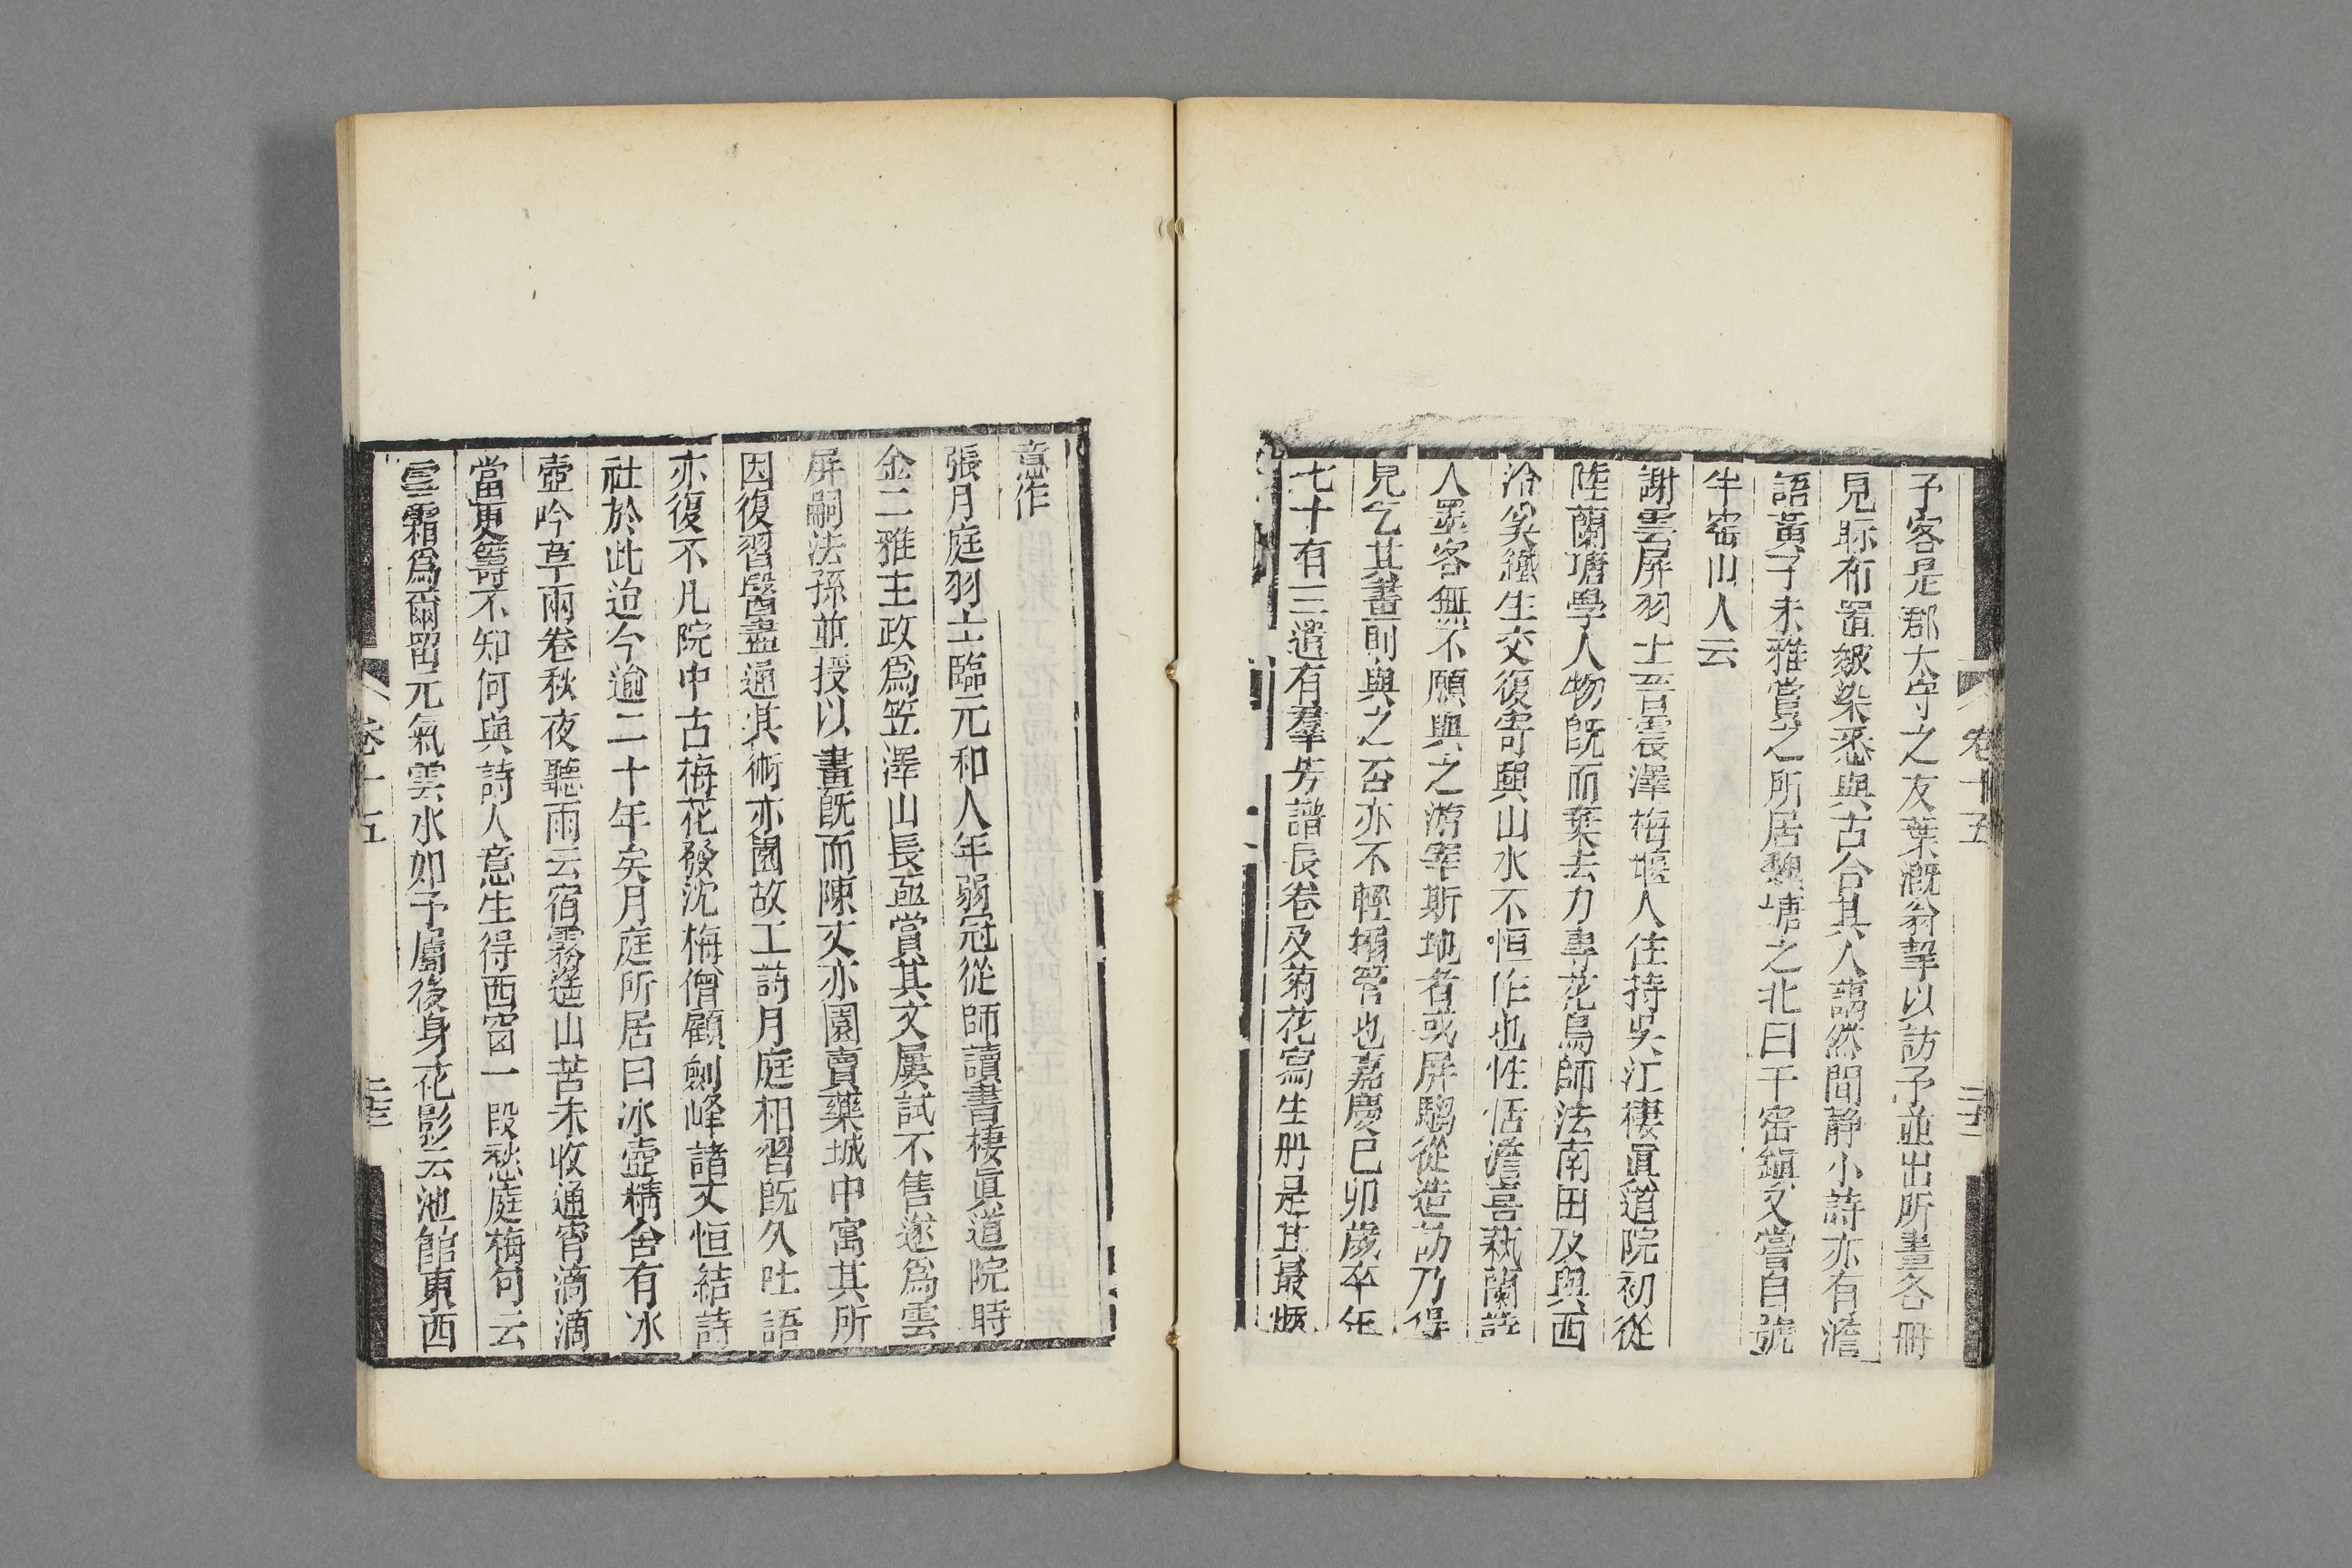 予客是郡太守之友葉漑翁挈以訪予並出所畫各冊
見眎布置皴染悉與古合其人藹然閒靜小詩亦有澹
語黃子未雅賞之所居魏塘之北曰干窑鎭又嘗自號
半窑山人云
謝雲屏羽士晋震澤梅堰人住持吳江棲眞道院初從
陸蘭塘學人物旣而棄去力專花鳥師法南田及與西
泠奚鐵生交復寄興山水不恒作也性恬澹喜蓺蘭
人墨客無不願與之游宰斯地者或屏騶從造訪乃得
見乞其畫則與之否亦不輕搦管也嘉慶己卯歲卒年
七十有三遺有羣芳譜長卷及菊花寫生册是其最
卷十五
意作
張月庭羽士臨元和人年弱冠從師讀書棲眞道院時
金二雅主政爲笠澤山長亟賞其文屢試不售遂爲雲
屏嗣法孫並授以畫旣而陳丈亦園賣藥城中寓其所
因復習醫盡通其術亦園故工詩月庭相習旣久吐語
亦復不凡院中古梅花發沈梅僧顧劍峰諸丈恒結詩
社於此迨今逾二十年矣月庭所居曰冰壺精舍有冰
壺吟草兩卷秋夜聽雨云宿霧籠山苦未收通宵滴滴
當更籌不知何與詩人意生得西窗一段愁庭梅句云
雪霜爲爾留元氣雲水如予屬後身花影云池館東西
卷十五